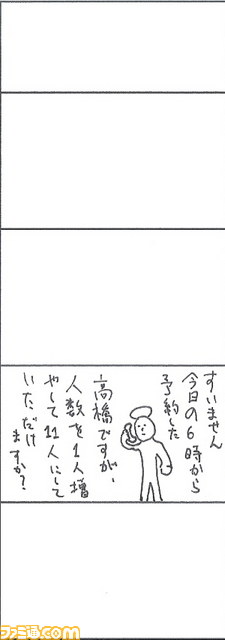 すいません
今日の6時から
予約した
高橋ですが、
人数を1人増
やして11人にして
いただけ
ますか?
ファミ通.com